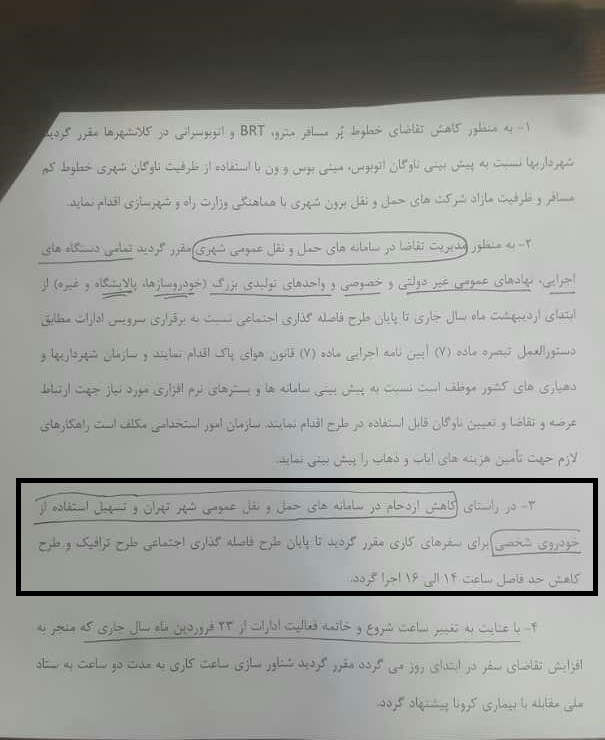 ۱- به منظور کاهش تقاضای خطوط پُر مسافر مترو، BRT و اتوبوسرانی در کلانشهرها مقرر گردید
شهرداریها نسبت به پیش بینی ناوگان اتوبوس، مینی بوس و ون با استفاده از ظرفیت ناوگان شهری خطوط کم
مسافر و ظرفیت مازاد شرکت های حمل و نقل برون شهری با هماهنگی وزارت راه و شهرسازی اقدام نماید.
۲- به منظور مدیریت تقاضا در سامانه های حمل و نقل عمومی شهری مقرر گردید تمامی دستگاه های
اجرایی، نهادهای عمومی غیر دولتی و خصوصی و واحدهای تولیدی بزرگ (خودروسازها، پالایشگاه و غیره) از
ابتدای اردیبهشت ماه سال جاری تا پایان طرح فاصله گذاری اجتماعی نسبت به برقراری سرویس ادارات مطابق
دستورالعمل تبصره ماده (۷) آیین نامه اجرایی ماده (۷) قانون هوای پاک اقدام نمایند و سازمان شهرداریها و
دهیاری های کشور موظف است نسبت به پیش بینی سامانه ها و بسترهای نرم افزاری مورد نیاز جهت ارتباط
عرضه و تقاضا و تعیین ناوگان قابل استفاده در طرح اقدام نمایند. سازمان امور استخدامی مکلف است راهکارهای
لازم جهت تأمین هزینه های ایاب و ذهاب را پیش بینی نماید.
۳- در راستای کاهش ازدحام در سامانه های حمل و نقل عمومی شهر تهران و تسهیل استفاده از
خودروی شخصی برای سفرهای کاری مقرر گردید تا پایان طرح فاصله گذاری اجتماعی طرح ترافیک و طرح
کاهش حد فاصل ساعت ۱۴ الی ۱۶ اجرا گردد.
۴- با عنایت به تغییر ساعت شروع و خاتمه فعالیت ادارات از ۲۳ فروردین ماه سال جاری که منجر به
افزایش تقاضای سفر در ابتدای روز می گردد مقرر گردید شناور سازی ساعت کاری به مدت دو ساعت به ستاد
ملی مقابله با بیماری کرونا پیشنهاد گردد.